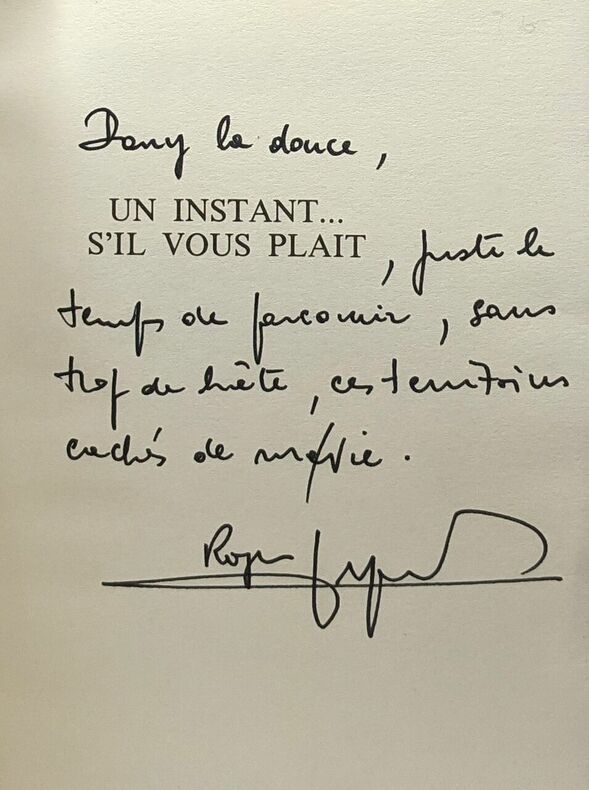 Dany la douce,
UN INSTANT...
S'IL VOUS PLAIT, juste le
temps de parcourir, sans
trop de hâte, ces territoires
cachés de ma vie.
Roger